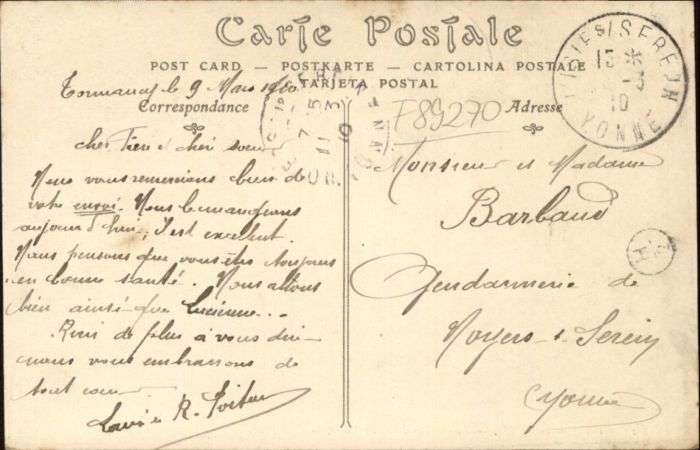 Carte Postale
POST CARD — POSTKARTE — CARTOLINA POSTALE
TARJETA POSTAL
le 9 Mars 1910
Correspondance
Adresse
F89270
ISLE S/ SEREIN
15 *
-3
10
YONNE
cher frère & cher soeur
Nous vous remercions bien de
votre envoi. Nous le mangeons
aujourd'hui, il est excellent.
Nous pensons que vous êtes toujours
en bonne santé. Nous allons
bien ainsi que Lucienne..
Rien de plus à vous dire
nous vous embrassons de
tout coeur
Louis & R.
Monsieur et Madame
Barbaud
Gendarmerie de
Noyers-s-Serein
Yonne